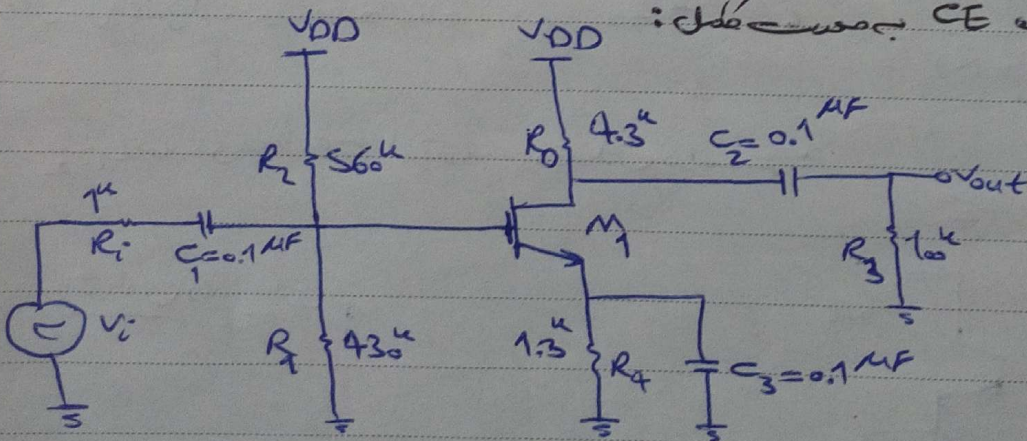 CE بدست
VDD
VDD
R₂ 560ᵏ
R_D 4.3ᵏ
C₂ = 0.1 μF
Vout
1ᵏ
Rᵢ
C₁ = 0.1 μF
M₁
R₃ 100ᵏ
Vᵢ
R₁ 430ᵏ
1.3ᵏ R₄
C₃ = 0.1 μF